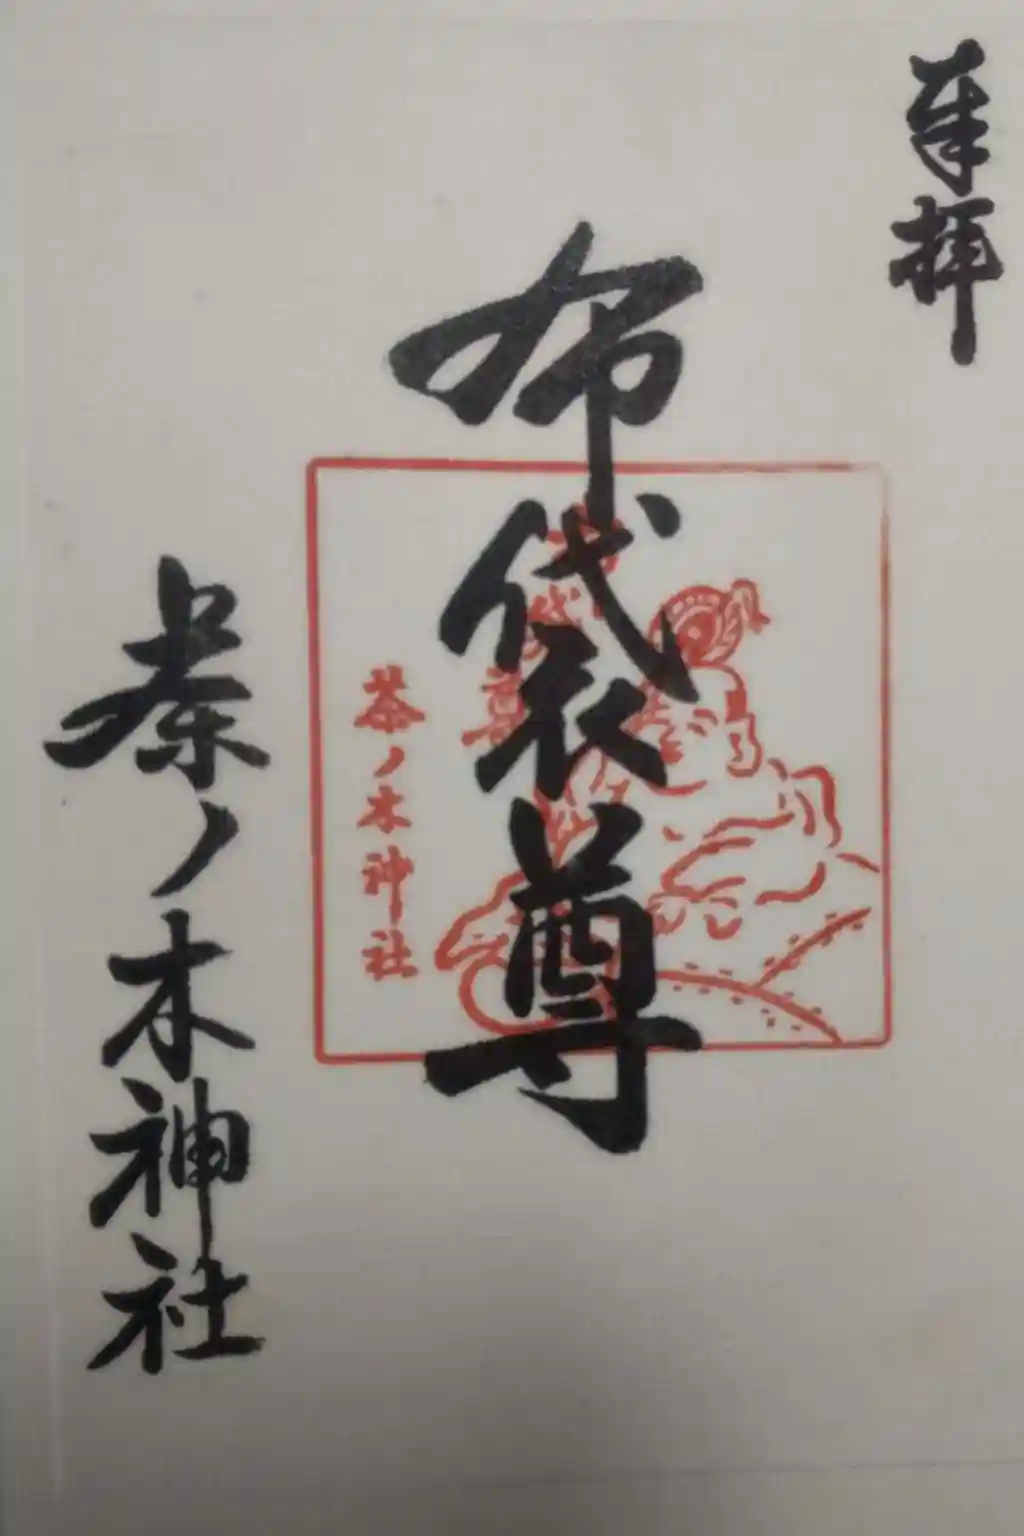 奉拝
布袋尊
茶ノ木神社
布袋尊
茶ノ木神社